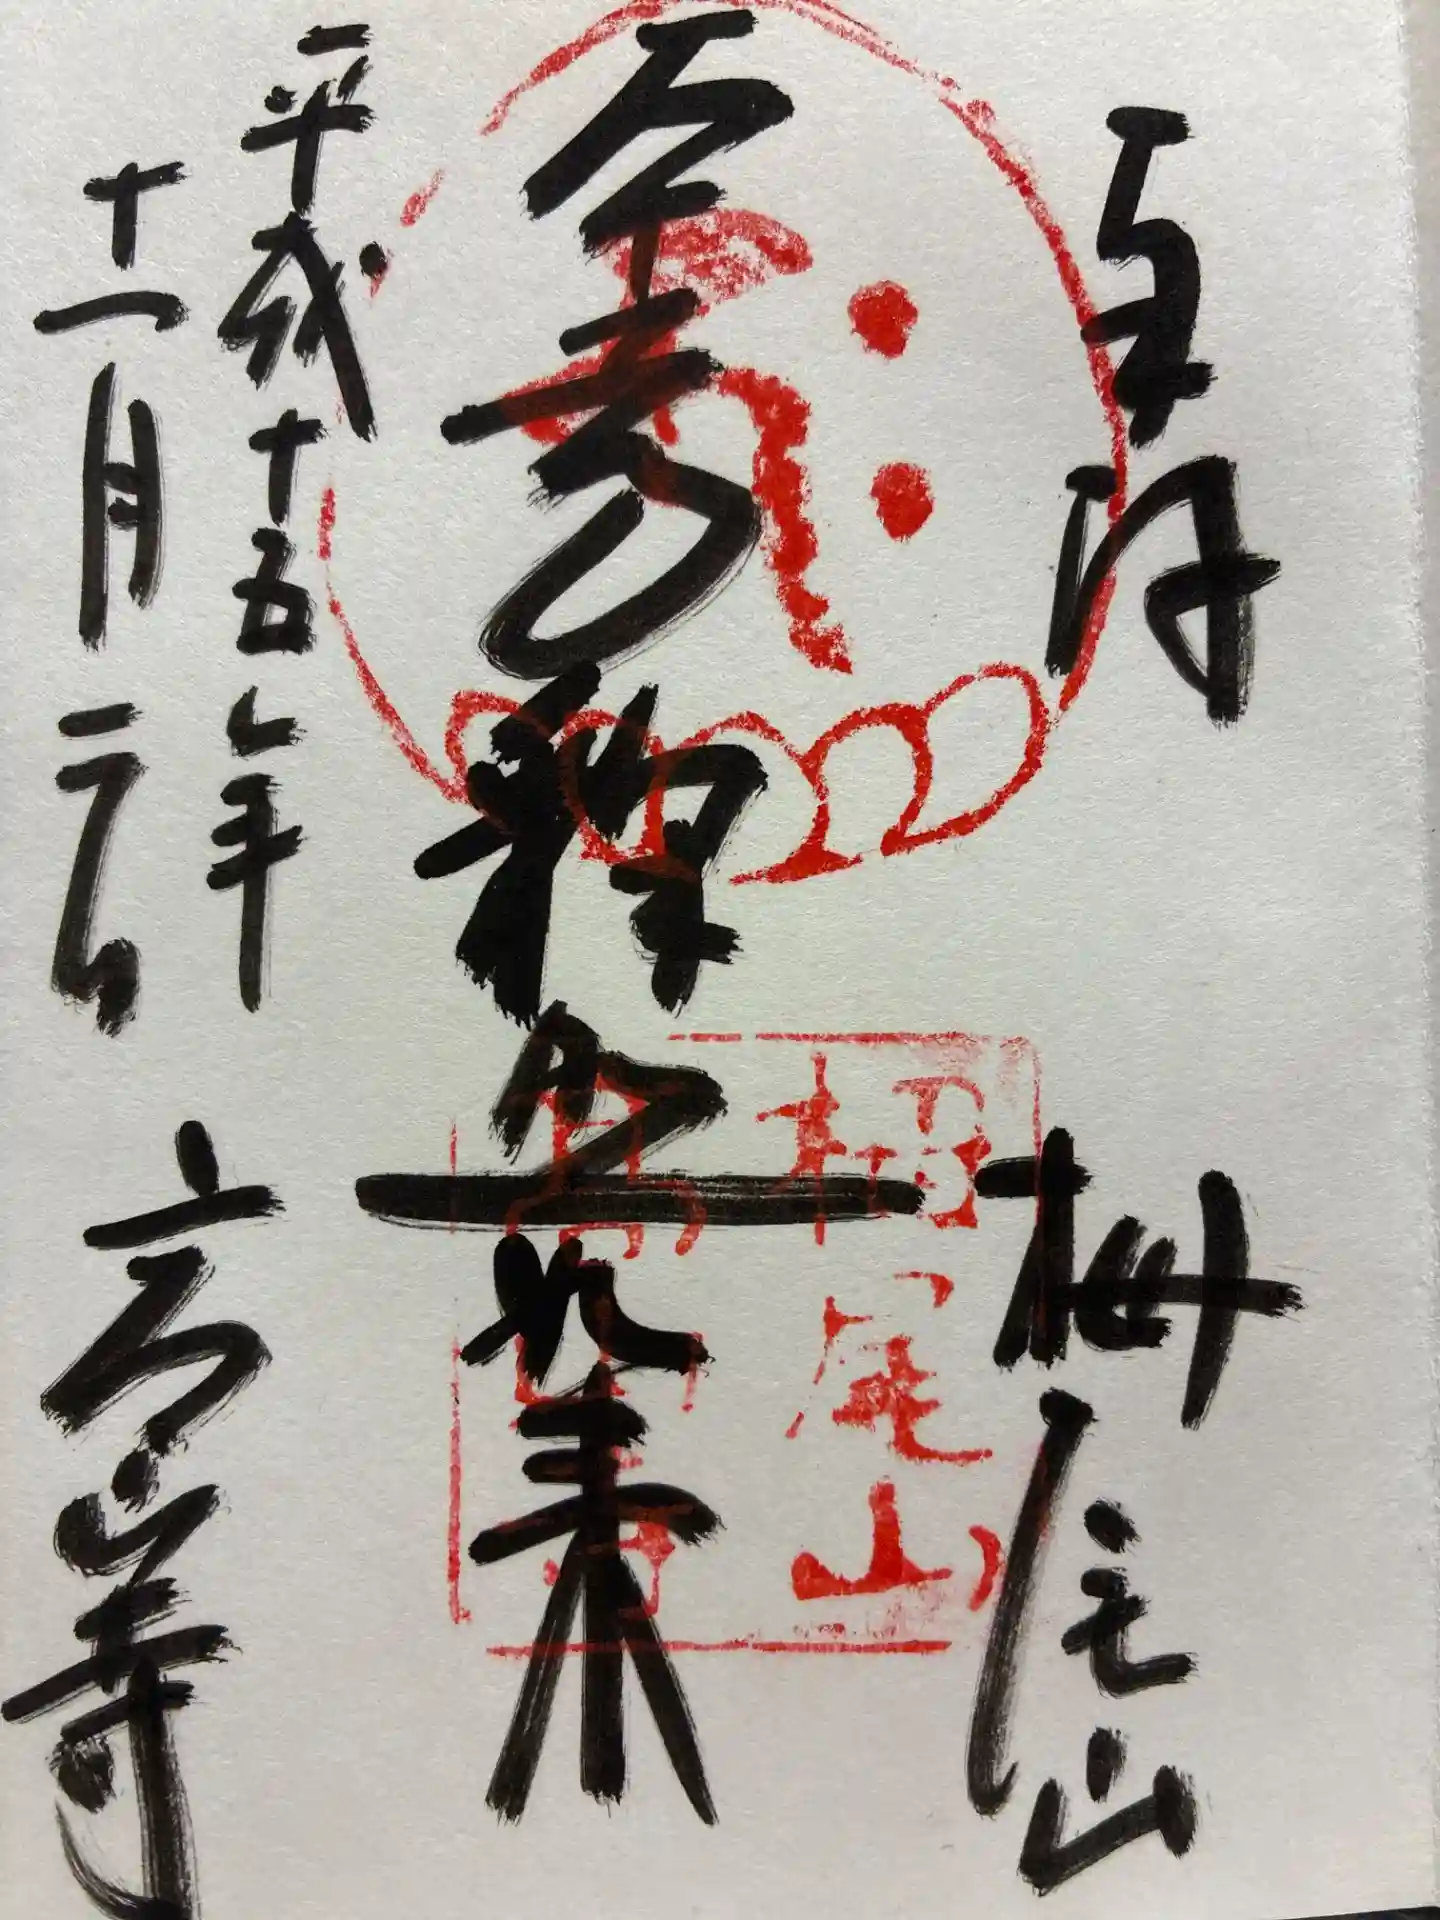 栂尾山
釈迦如来
平成十五年
十一月二日
高山寺
栂尾山
高山寺